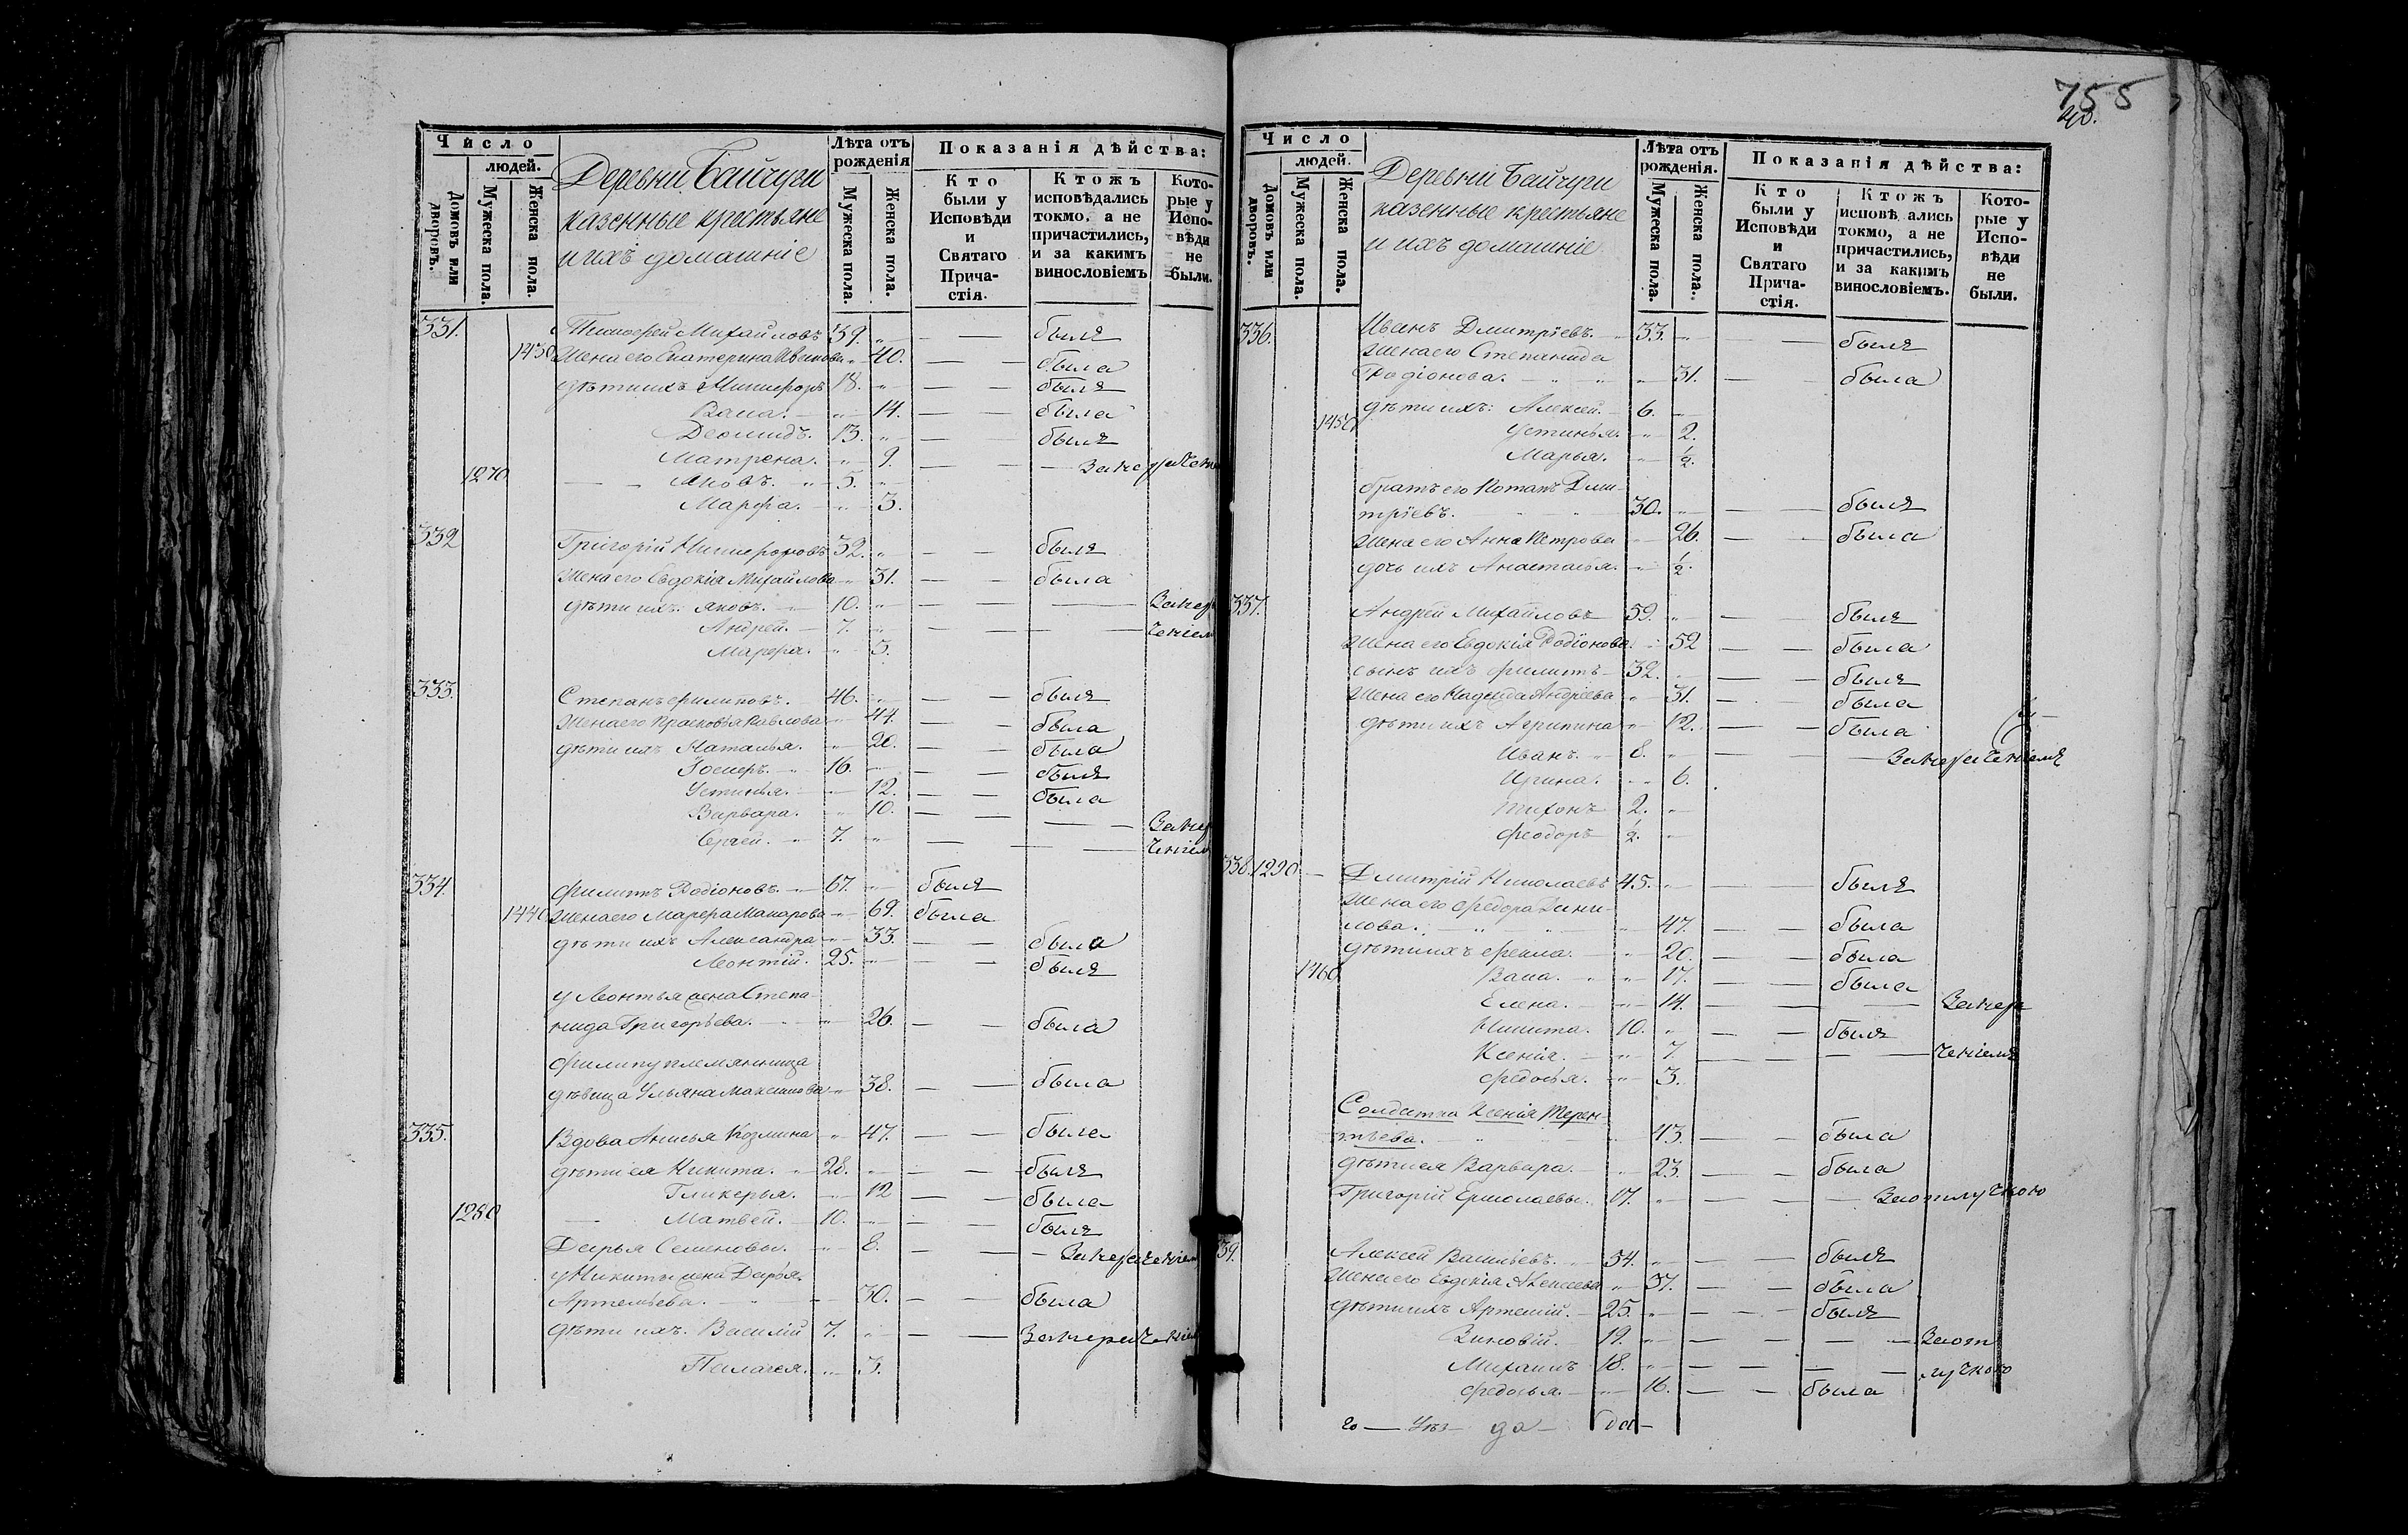 755
40.
Число
людей.
Домовъ или дворовъ.
Мужеска пола.
Женска пола.
Деревни Байчуги
казенные крестьяне
и ихъ домашніе
Лѣта отъ рожденія
Мужеска пола.
Женска пола.
Показанія дѣйства:
Кто были у Исповѣди и Святаго Прича- стія.
Ктожъ исповѣдались токмо, а не причастились, и за какимъ винословіемъ
Кото- рые у Испо- вѣди не были.
331. Тимофей Михайловъ 39. былъ
1430 Жена его Екатерина Иванова 40. была
дѣти ихъ Никифоръ 18. былъ
Васа. 14. была
Деомидъ. 13. былъ
Матрена. 9. За
1270 Яковъ. 5.
Марфа. 3.
332 Григорій Никифоровъ 32. былъ
Жена его Евдокія Михайлова 31. была
дѣти ихъ: Яковъ. 10.
Андрей. 7.
Марфа. 3.
333. Степанъ Филиповъ. 46. былъ
Жена его Прасковья Павлова 44. была
дѣти ихъ Наталья. 20. была
Іосифъ. 16. былъ
Устинья. 12. была
Варвара. 10.
Сергей. 7.
334. Филиппъ Родіоновъ. 67. былъ
1440 Жена его Марфа Макарова 69. была
дѣти ихъ Александра 33. была
Леонтій. 25. былъ
у Леонтья жена Степа-
нида Григорьева. 26. была
Филипу племянница
дѣвица Ульяна Максимова 38. была
335. Вдова Анисья Козмина 47. была
дѣти ея Никита. 28. былъ
Гликерья. 12 была
1280 Матвей. 10. былъ
Дарья Семеновы. 8.
у Никиты жена Дарья
Артемьева. 30. была
дѣти ихъ. Василій 7.
Пелагея. 3.
Число
людей.
Домовъ или дворовъ.
Мужеска пола.
Женска пола.
Деревни Байчуги
казенные крестьяне
и ихъ домашніе
Лѣта отъ рожденія.
Мужеска пола.
Женска пола.
Показанія дѣйства:
Кто были у Исповѣди и Святаго Прича- стія.
Ктожъ исповѣ ались токмо, а не причастились, и за какимъ винословіемъ.
Кото- рые у Испо- вѣди не были.
336. Иванъ Дмитріевъ. 33. былъ
Жена его Степанида
Родіонова. 31. была
1450 дѣти ихъ: Алексей. 6.
Устинья. 2.
Марья. 1/2.
братъ его Потапъ Дми-
тріевъ. 30. былъ
Жена его Анна Петрова 26. была
дочь ихъ Анастасья. 1/2.
337. Андрей Михайловъ 59. былъ
Жена его Евдокія Родіонова. 52 была
сынъ ихъ Филиппъ 32. былъ
Жена его Надежда Андреева 31. была
дѣти ихъ Агрипина 12. была
Иванъ. 8.
Ирина. 6.
Тихонъ 2.
Феодоръ 1/2.
338. 1290 Дмитрій Николаевъ 45. былъ
Жена его Федора Дани-
лова. 47. была
дѣти ихъ Фекла. 20. была
1460 Васа. 17. была
Елена. 14.
Никита. 10. былъ
Ксенія. 7.
Федосья. 3.
Солдатка Ксенія Терен-
тьева. 43. была
дѣти ея Варвара. 23. была
Григорій Ермолаевы. 17. За отлучкою
39. Алексей Васильевъ. 54. былъ
Жена его Евдокія Алексеева 57. была
дѣти ихъ Артемій. 25. былъ
Зиновій. 19. За от
Михаилъ 18. лучкою
Федосья. 16. была
го — Уѣз — да —